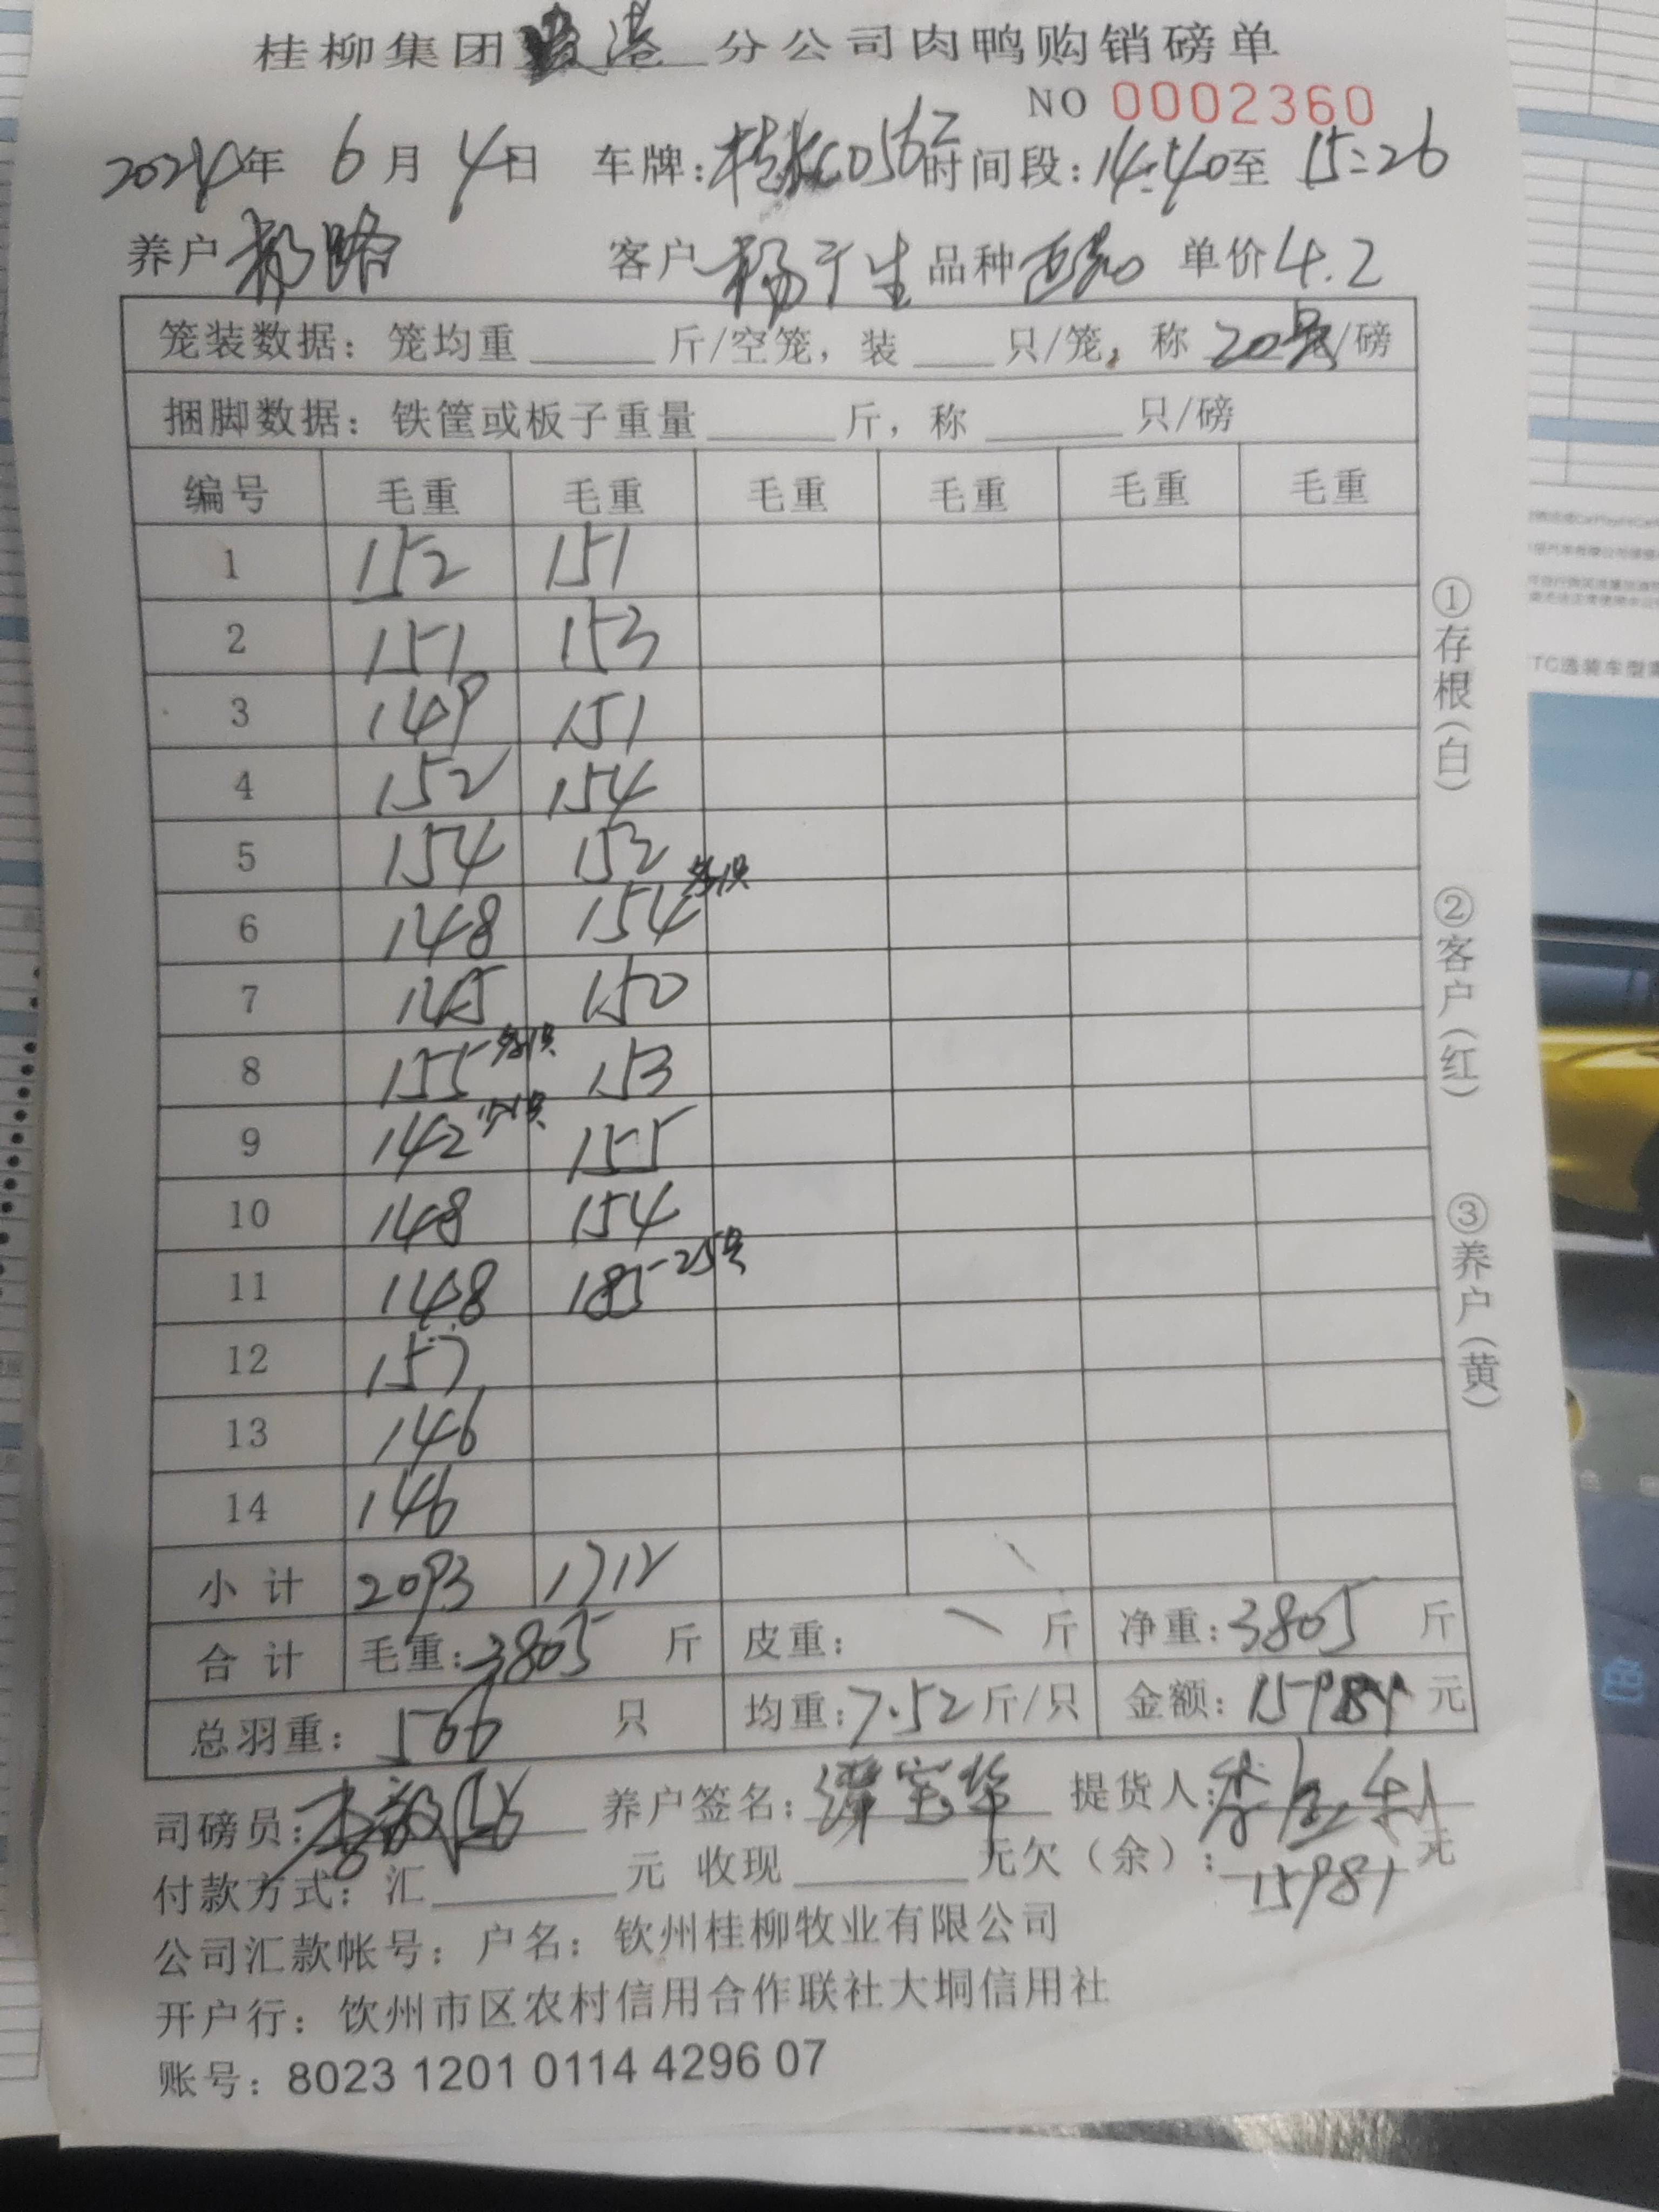 桂柳集团 港 分公司肉鸭购销磅单
NO 0002360
2024年 6月 4日 车牌: 时间段:14:40至 15:26
养户 路 客户 杨于生 品种 单价4.2
笼装数据: 笼均重 斤/空笼, 装 只/笼, 称 20只/磅
捆脚数据: 铁筐或板子重量 斤, 称 只/磅
编号 毛重 毛重 毛重 毛重 毛重 毛重
1 152 151
2 151 153
3 149 151
4 152 154
5 154 152
6 148 154 多1只
7 145 150
8 155 多1只 153
9 142 少1只 155
10 148 154
11 148 185-25只
12 157
13 146
14 146
小计 2093 1712
合计 毛重:3805 斤 皮重: 斤 净重:3805 斤
总羽重: 506 只 均重:7.52斤/只 金额: 元
司磅员: 养户签名:谭宝华 提货人:
付款方式: 汇 元 收现 元欠(余): 15981 元
公司汇款帐号: 户名: 钦州桂柳牧业有限公司
开户行: 钦州市区农村信用合作联社大垌信用社
账号: 8023 1201 0114 4296 07
①存根(白)
②客户(红)
③养户(黄)
TC选装车型
色